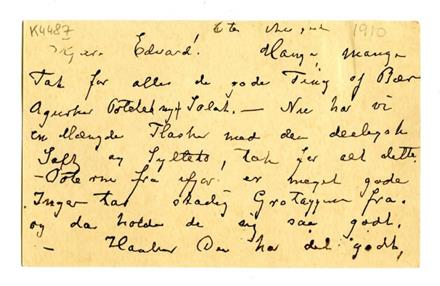 K4487 1910
Kjære Edvard! Mange mange
Tak for alle de gode Ting og Bær
Agurker Poteter Salat. — Nu har vi
en Mængde Flasker med den
Saft og Syltetø, tak for alt dette
— fra ifjor er meget gode
Inger har
og da holder de sig saa godt.
— Haaber Du har det godt,